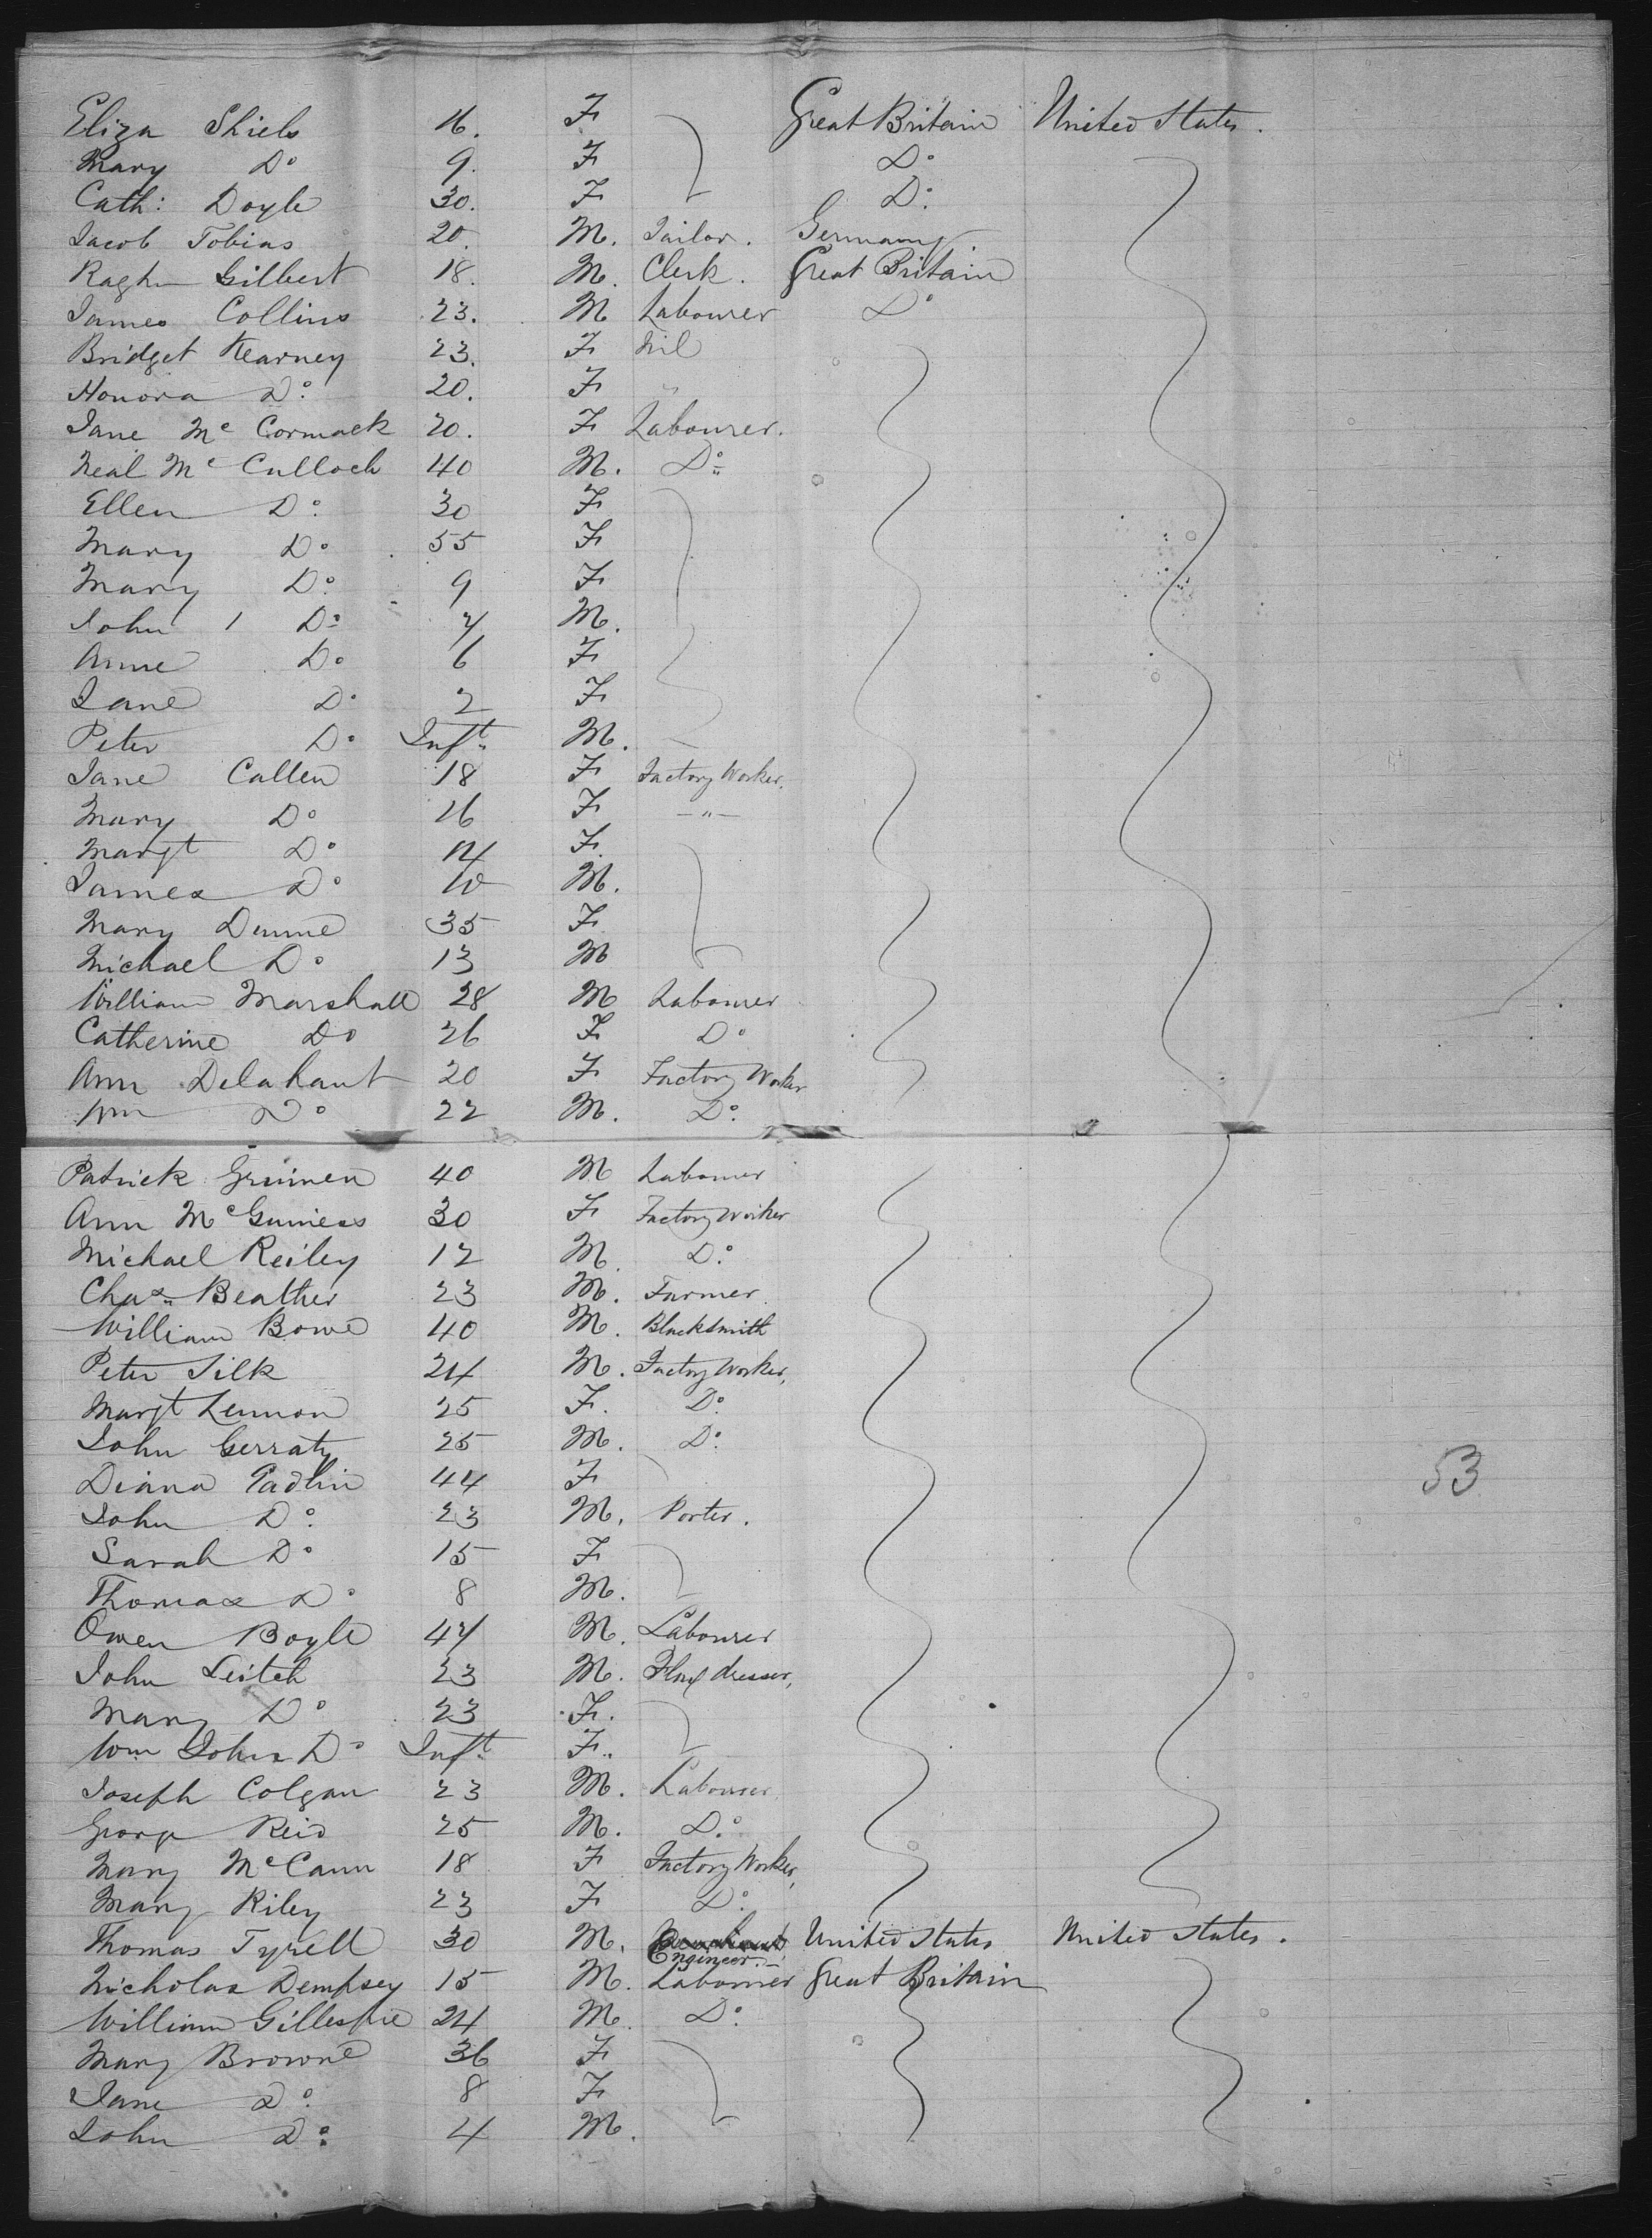 Eliza Shiels 16. F Great Britain United States.
Mary Do 9. F Do
Cath: Doyle 30. F Do
Jacob Tobias 20. M. Tailor. Germany
Gilbert 18. M. Clerk. Great Britain
James Collins 23. M Labourer Do
Bridget Kearney 23. F Nil
Honora Do 20. F "
Jane Mc Cormack 20. F Labourer.
Neal Mc Culloch 40 M. Do
Ellen Do 30 F
Mary Do 55 F
Mary Do 9 F
John Do 7 M.
Anne Do 6 F
Jane Do 2 F
Peter Do Inft. M.
Jane Callen 18 F Factory Worker.
Mary Do 16 F -"-
Margt Do 14 F
James Do 10 M.
Mary Dunne 35 F
Michael Do 13 M
William Marshall 28 M Labourer
Catherine Do 26 F Do
Ann Delahaunt 20 F Factory Worker
Wm Do 22 M. Do
Patrick 40 M Labourer
Ann McGuiness 30 F Factory Worker
Michael Reiley 12 M Do
Chas. Beather 23 M. Farmer
William Bowe 40 M. Blacksmith
Peter Silk 24 M. Factory Worker,
Margt Lennon 25 F. Do
John Gerraty 25 M. Do
Diana Padlin 44 F
John Do 23 M. Porter.
Sarah Do 15 F
Thomas Do 8 M.
Owen Boyle 47 M. Labourer
John Leitch 23 M. Flax dresser,
Mary Do 23 F.
Wm John Do Inft. F.
Joseph Colgan 23 M. Labourer
George Reid 25 M. Do
Mary McCann 18 F Factory Worker,
Mary Riley 23 F Do
53
Thomas Tyrell 30 M. Engineer. United States United States.
Nicholas Dempsey 15 M. Labourer Great Britain
William Gillespie 24 M. Do
Mary Browne 36 F
Jane Do 8 F
John Do 4 M.